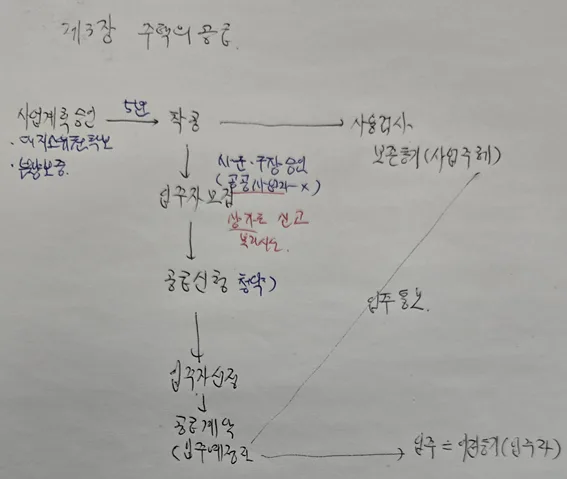 제3장 주택의 공급
사업계획승인
5년
착공
사용검사
· 대지소유권확보
· 분양보증
보존등기(사업주체)
시·군·구장 승인
(공공사업자-x)
입주자 모집
상가로 신고
복리시설
공급신청 청약)
입주통보
입주자선정
공급계약
(입주예정자
입주 = 이전등기(입주자)